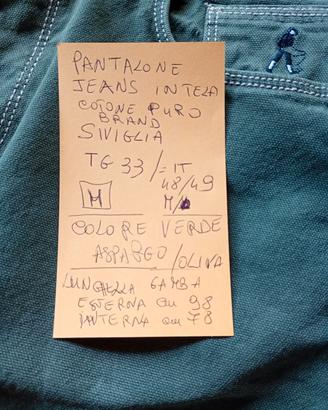 PANTALONE
JEANS IN TELA
COTONE PURO
BRAND
SIVIGLIA
TG 33/= IT
48/49
M M/
COLORE VERDE
ASPARGO/OLIVA
LUNGHEZZA GAMBA
ESTERNA cm 98
INTERNA cm 78